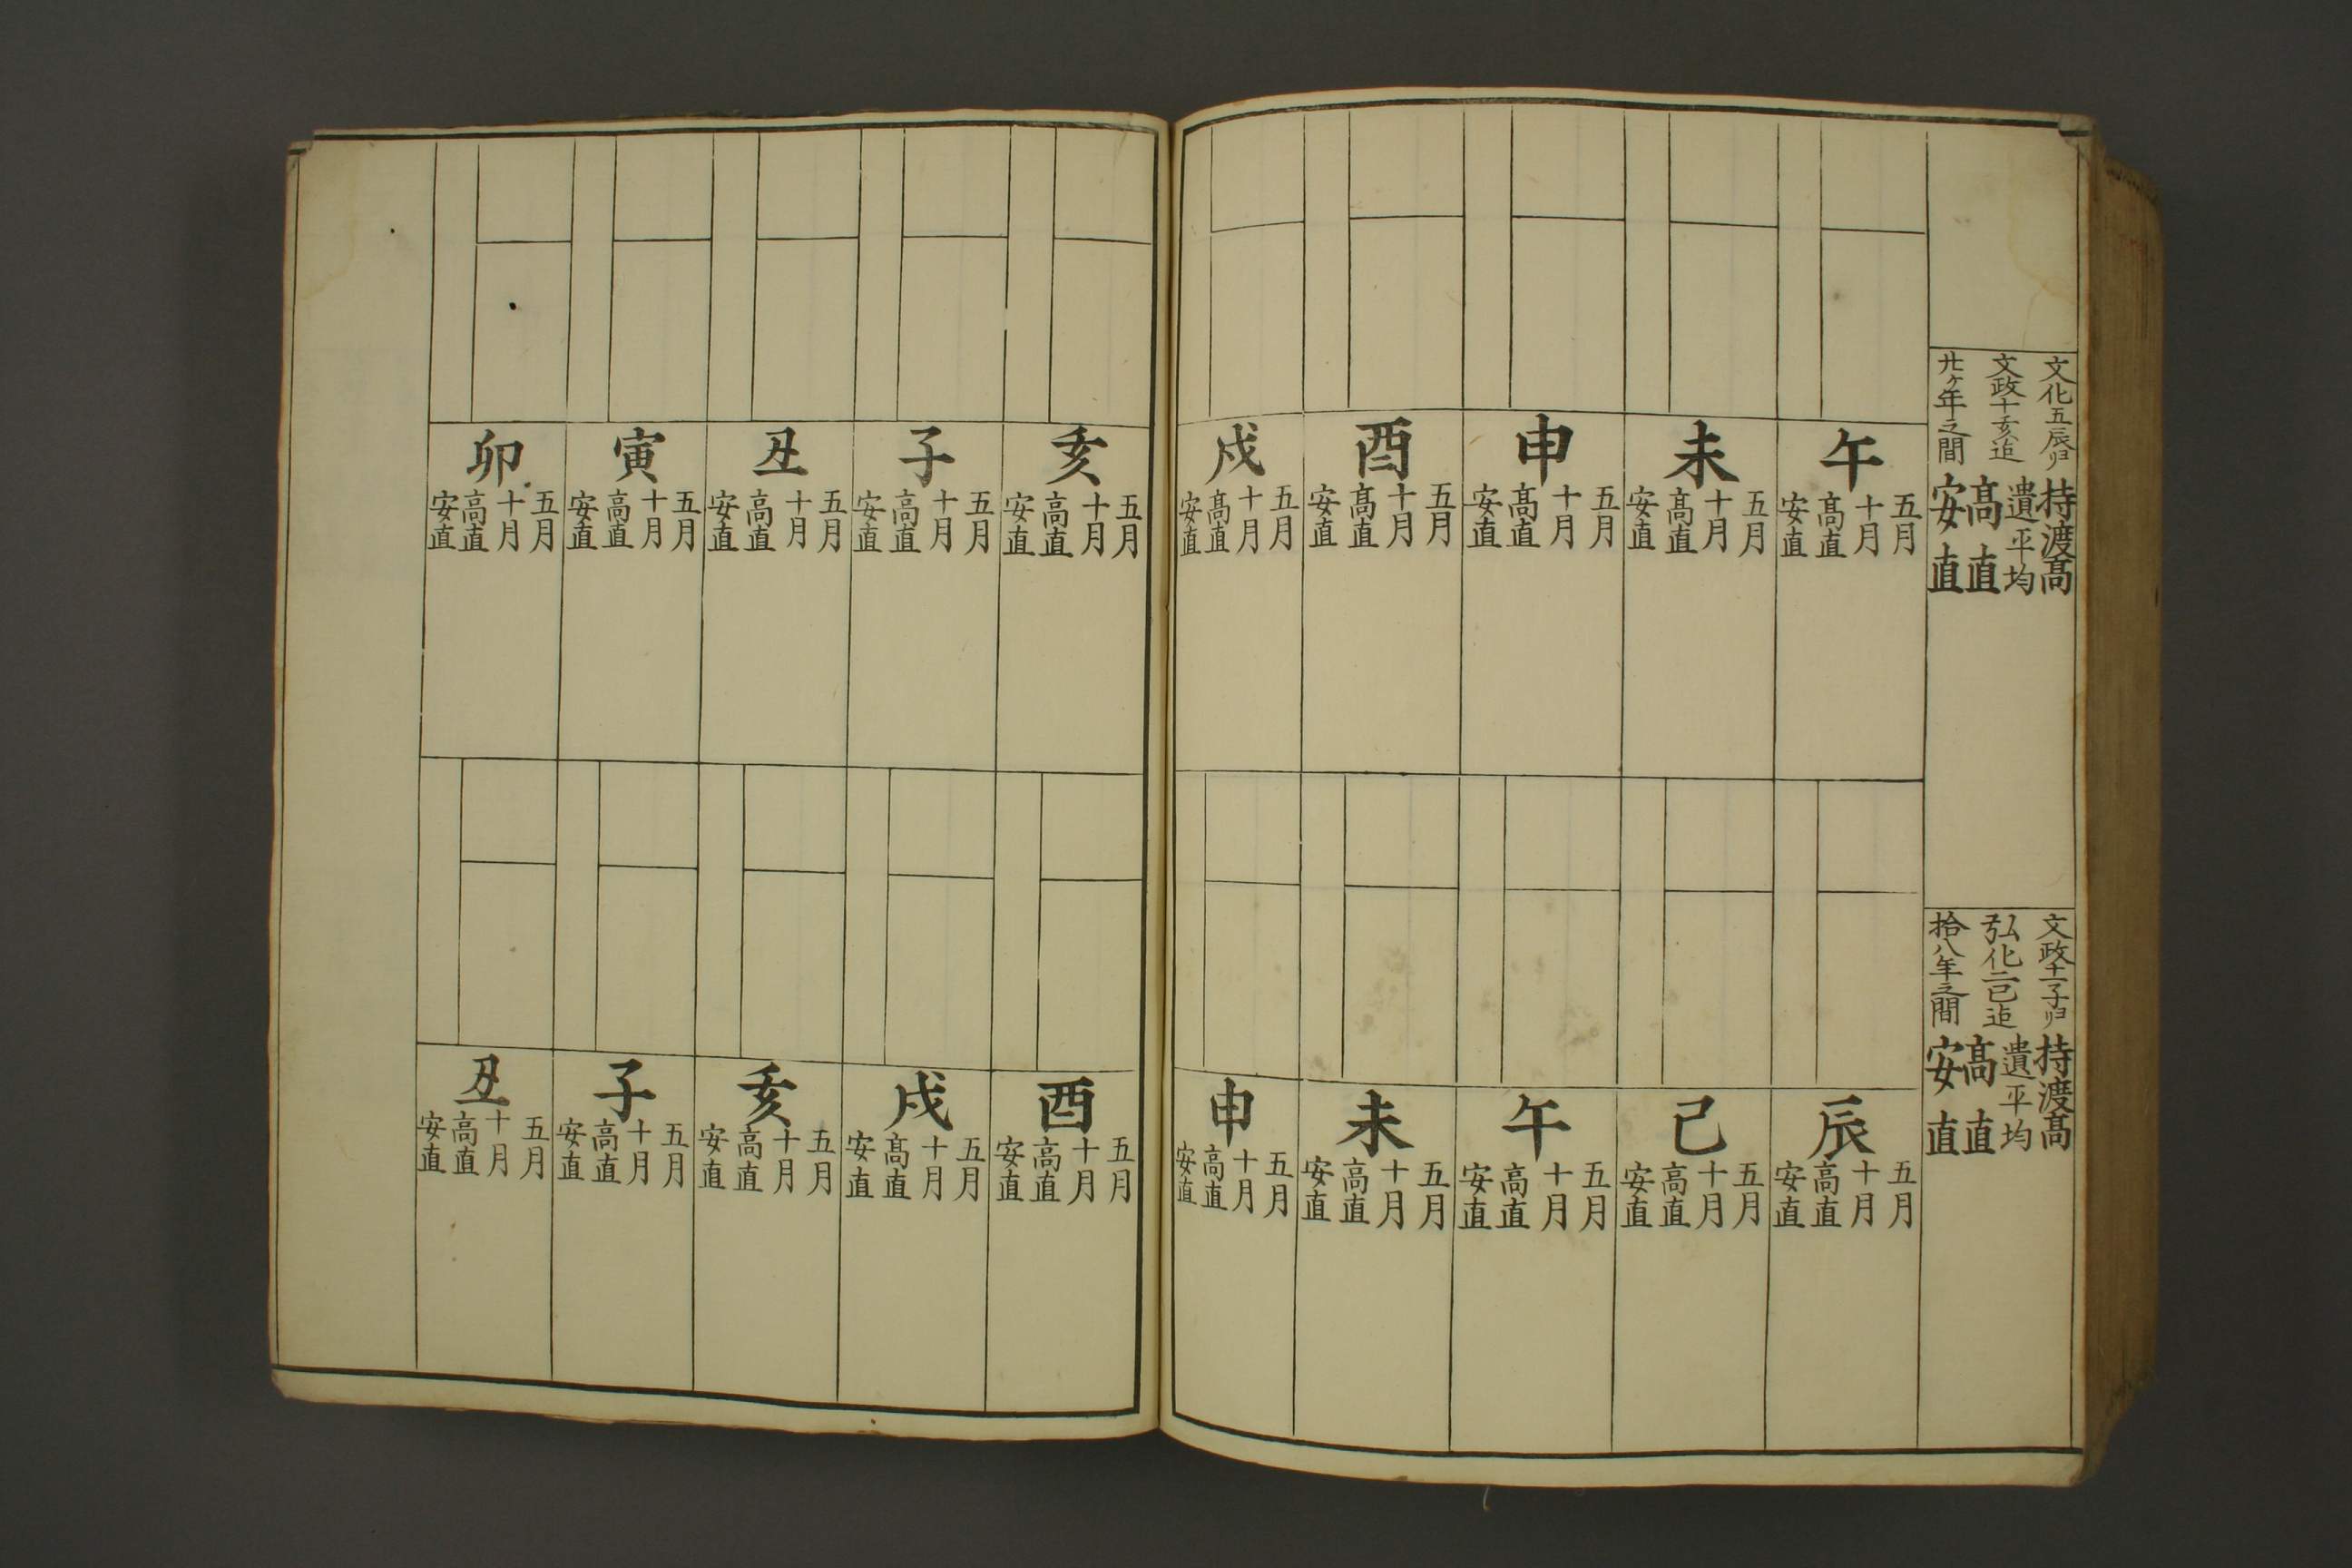 文化五辰ゟ
文政十亥迄
廿ケ年之間
持渡髙
遺平均
髙直
安直
文政十一子ゟ
弘化二巳迄
拾八年之間
持渡髙
遺平均
髙直
安直
午
五月
十月
髙直
安直
未
五月
十月
髙直
安直
申
五月
十月
髙直
安直
酉
五月
十月
髙直
安直
戌
五月
十月
髙直
安直
辰
五月
十月
高直
安直
巳
五月
十月
高直
安直
午
五月
十月
高直
安直
未
五月
十月
高直
安直
申
五月
十月
高直
安直
亥
五月
十月
高直
安直
子
五月
十月
高直
安直
丑
五月
十月
高直
安直
寅
五月
十月
高直
安直
卯
五月
十月
高直
安直
酉
五月
十月
高直
安直
戌
五月
十月
髙直
安直
亥
五月
十月
高直
安直
子
五月
十月
高直
安直
丑
五月
十月
高直
安直